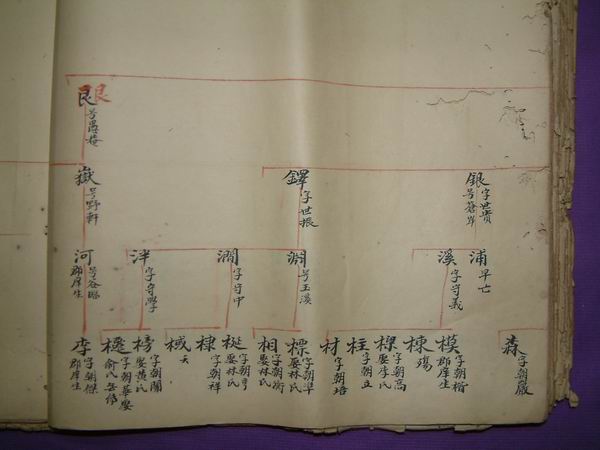 艮
号愚菴
銀
字世貴
号蒼岸
鐸
字世振
嶽
号野軒
浦
早亡
溪
字守義
淵
号玉溪
澗
字守中
泮
字守學
河
号谷
郡庠生
森
字朝嚴
模
字朝楷
郡庠生
棟
殤
樑
字朝高
娶李氏
柱
字朝立
材
字朝培
標
字朝準
娶林氏
相
字朝衡
娶林氏
梴
字朝
娶林氏
棣
字朝祥
棫
夭
榜
字朝
娶黃氏
字朝華娶
俞氏無傳
李
字朝傑
郡庠生